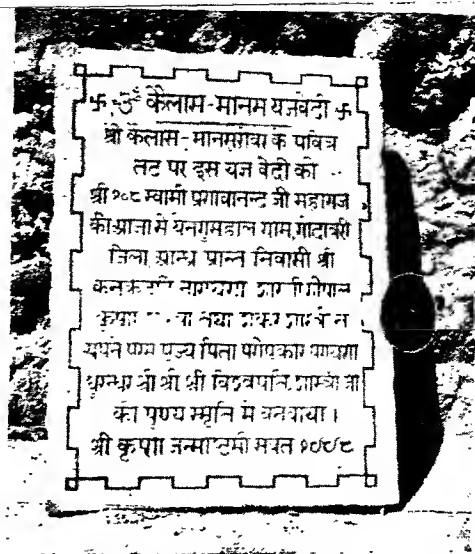 卐 ॐ कैलास-मानस यज्ञवेदी 卐
श्री कैलास-मानसरोवर के पवित्र
तट पर इस यज्ञ वेदी को
श्री १०८ स्वामी प्रणवानन्द जी महाराज
की आज्ञा से ग्राम, गोदावरी
जिला, आन्ध्र प्रान्त निवासी श्री
नारायण
तथा
अपने परम पूज्य पिता परोपकार परायण
धुरन्धर श्री श्री श्री विश्वपति शास्त्री जी
की पुण्य स्मृति में बनवाया ।
श्री कृष्ण जन्माष्टमी संवत